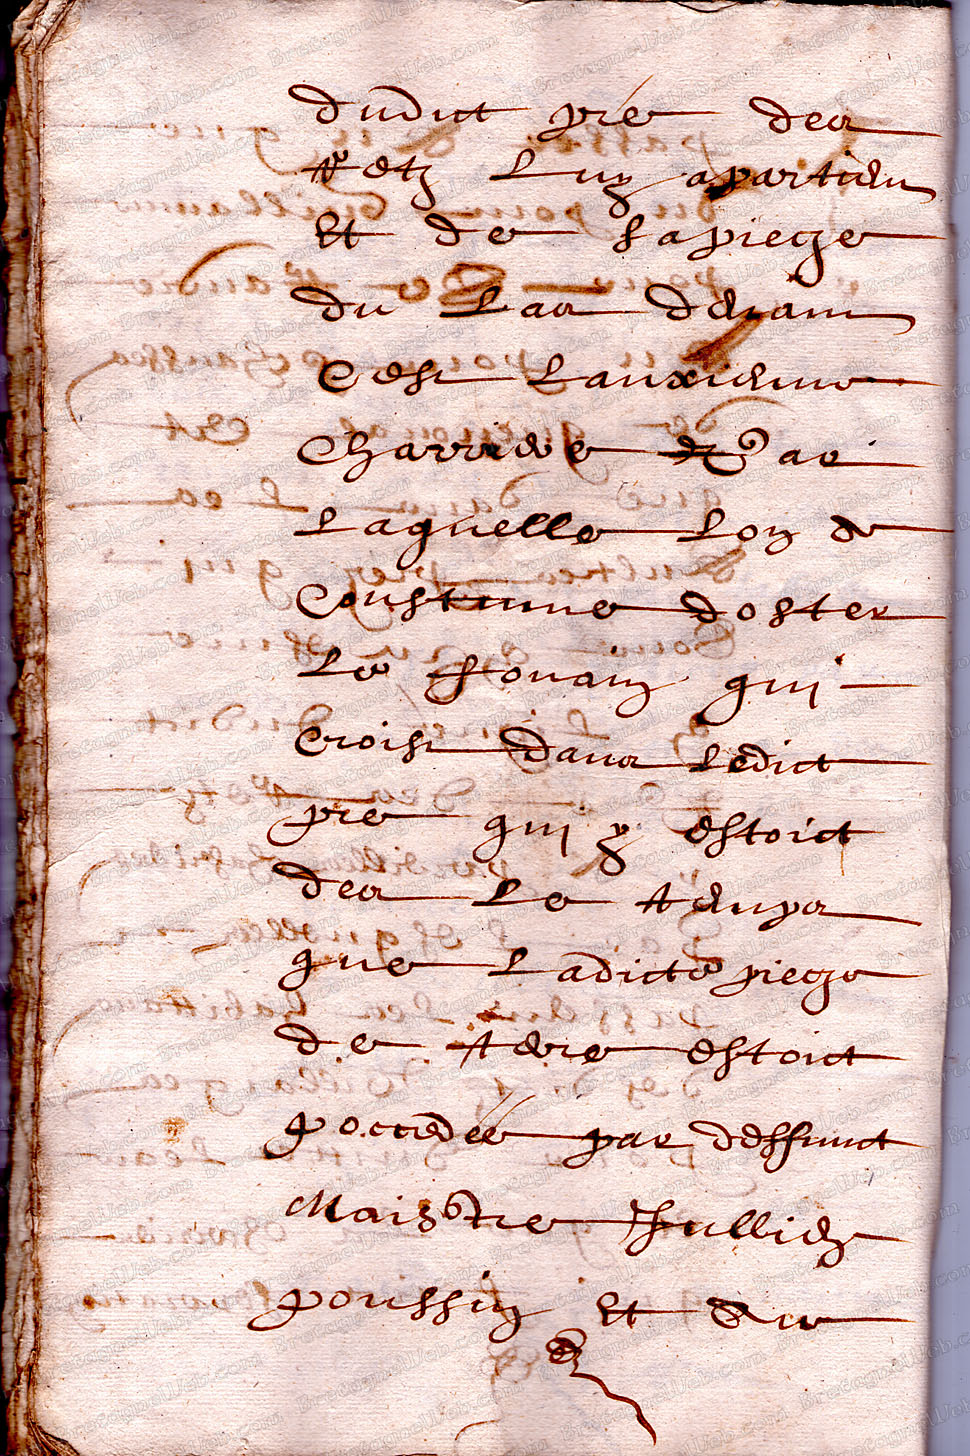 dudict pré des
Retz Luy apartien
Et de la piecze
du Lac devam
C est Lantienne
Charriere par
Laquelle Lon a
Coustume doster
Le fouain qui
Croist dans Ledict
pré qui y estoict
des Le temps
que Ladicte piecze
de terre estoict
poccedée par deffunct
Maistre Jullien
poussin Et